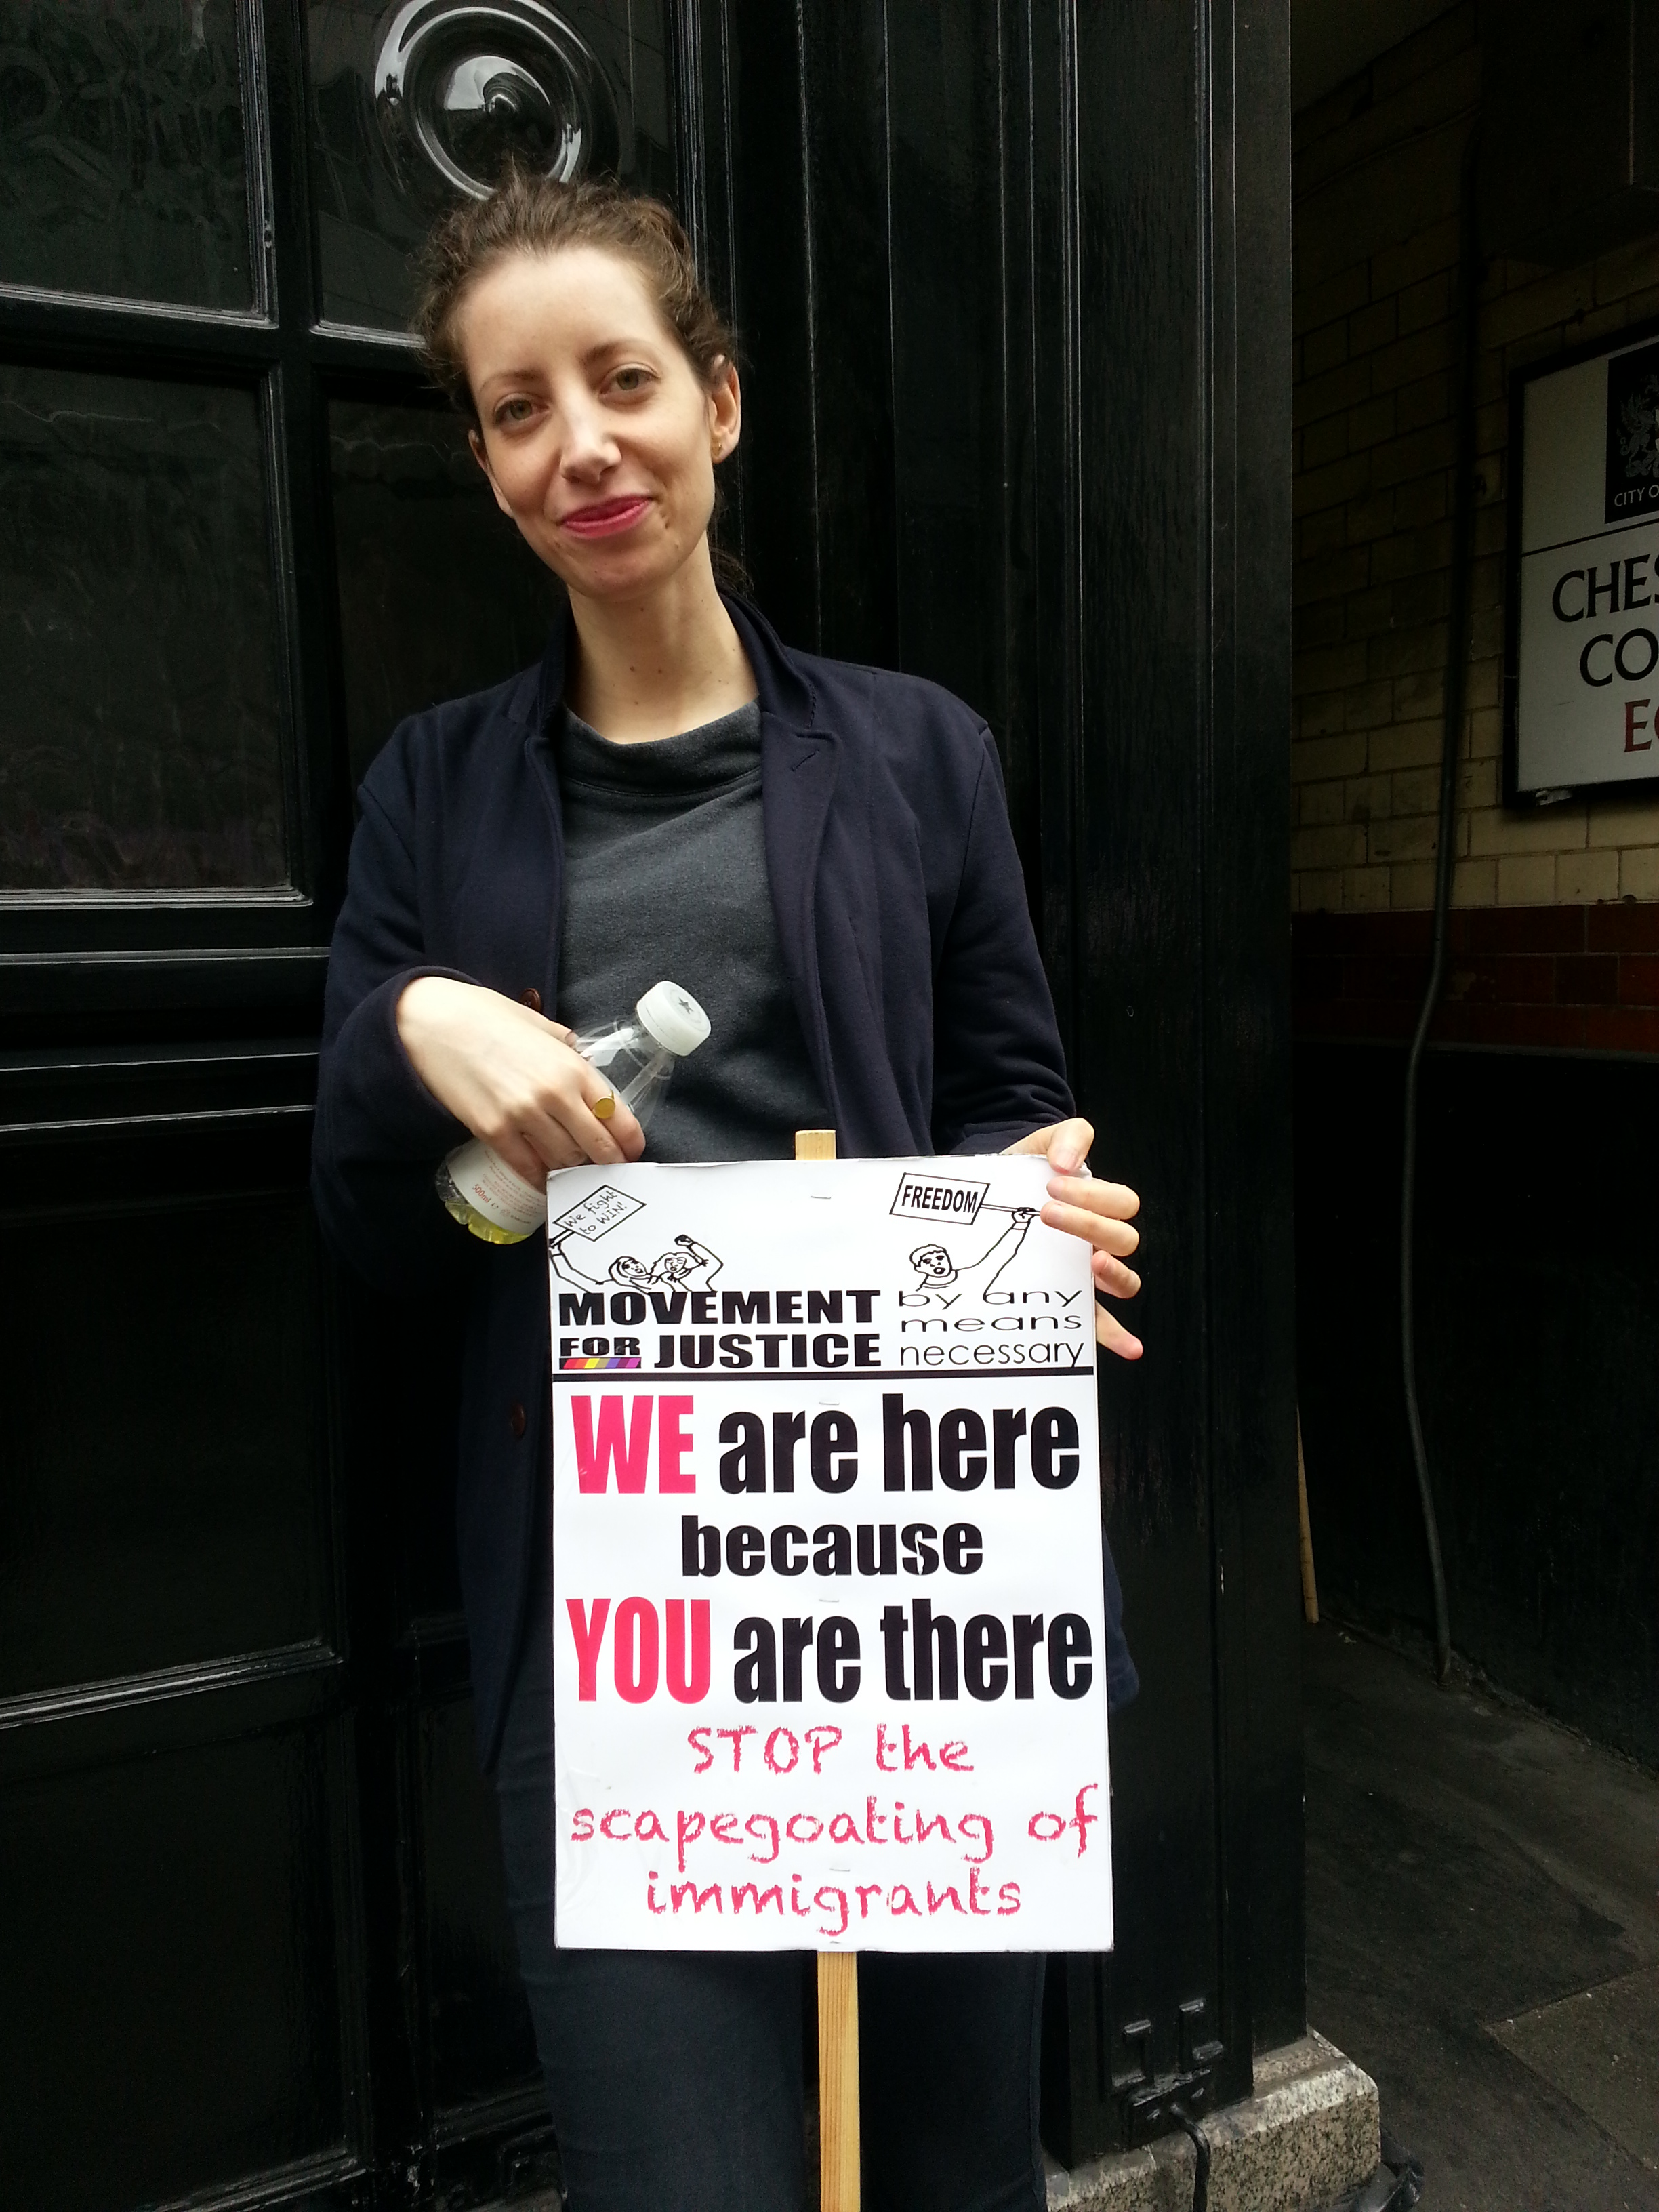 We fight
to WIN!
FREEDOM
MOVEMENT
FOR JUSTICE
by any
means
necessary
WE are here
because
YOU are there
STOP the
scapegoating of
immigrants
500ml e
CITY O
CHES
CO
EC